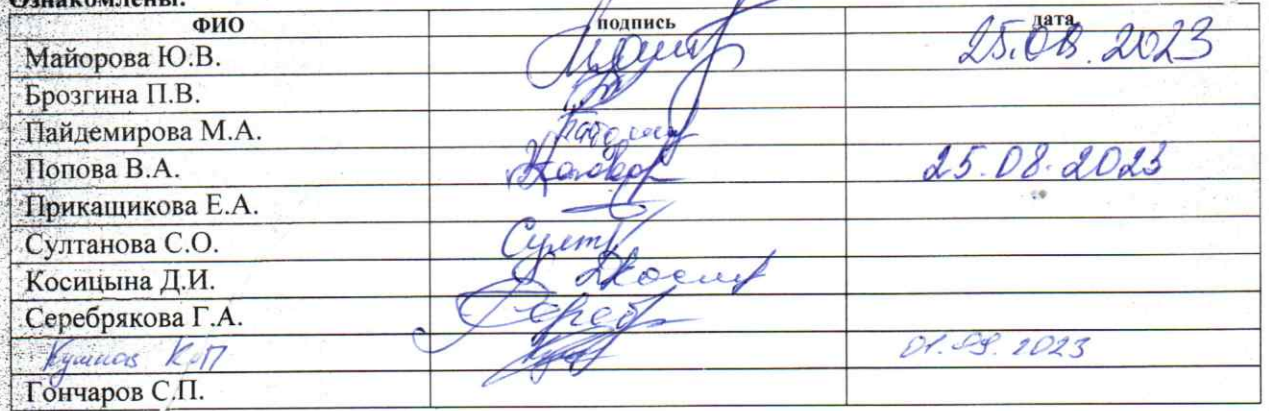 Ознакомлены:
ФИО подпись дата
Майорова Ю.В. 25.08.2023
Брозгина П.В.
Пайдемирова М.А.
Попова В.А. 25.08.2023
Прикащикова Е.А.
Султанова С.О.
Косицына Д.И.
Серебрякова Г.А.
01.09.2023
Гончаров С.П.